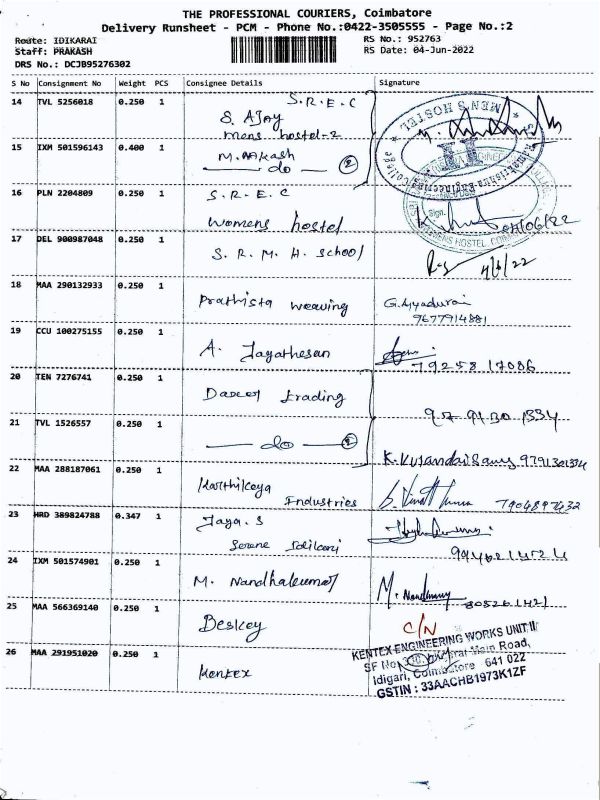 THE PROFESSIONAL COURIERS, Coimbatore
Delivery Runsheet - PCM - Phone No.:0422-3505555 - Page No.:2
Route: IDIKARAI
Staff: PRAKASH
DRS No.: DCJB95276302
RS No.: 952763
RS Date: 04-Jun-2022
S No Consignment No Weight PCS Consignee Details Signature
14 TVL 5256018 0.250 1 S.R.E.C
S. AJay
mens hostel-2
MEN'S HOSTEL
15 IXM 501596143 0.400 1 M. Aakash
do 2
16 PLN 2204809 0.250 1 S.R.E.C
Womens hostel
Sign.
WOMENS HOSTEL, COIMBATORE
17 DEL 900987048 0.250 1 S.R.M.H. School
4/6/22
18 MAA 290132933 0.250 1 Prathista weaving G.Ayyadurai
9677914881
19 CCU 100275155 0.250 1 A. Jayathesan
79258 17086
20 TEN 7276741 0.250 1 trading
979130 1334
21 TVL 1526557 0.250 1 do 2
9791301334
22 MAA 288187061 0.250 1 Karthikeya
Industries 7904897432
23 HRD 389824788 0.347 1 Jaya.S
Serene
24 IXM 501574901 0.250 1 M. Nandhakumar
25 MAA 566369140 0.250 1 Beskey C/N
26 MAA 291951020 0.250 1 Kentex
KENTEX ENGINEERING WORKS UNIT II
SF No Main Road,
Idigari, Coimbatore 641 022
GSTIN : 33AACHB1973K1ZF